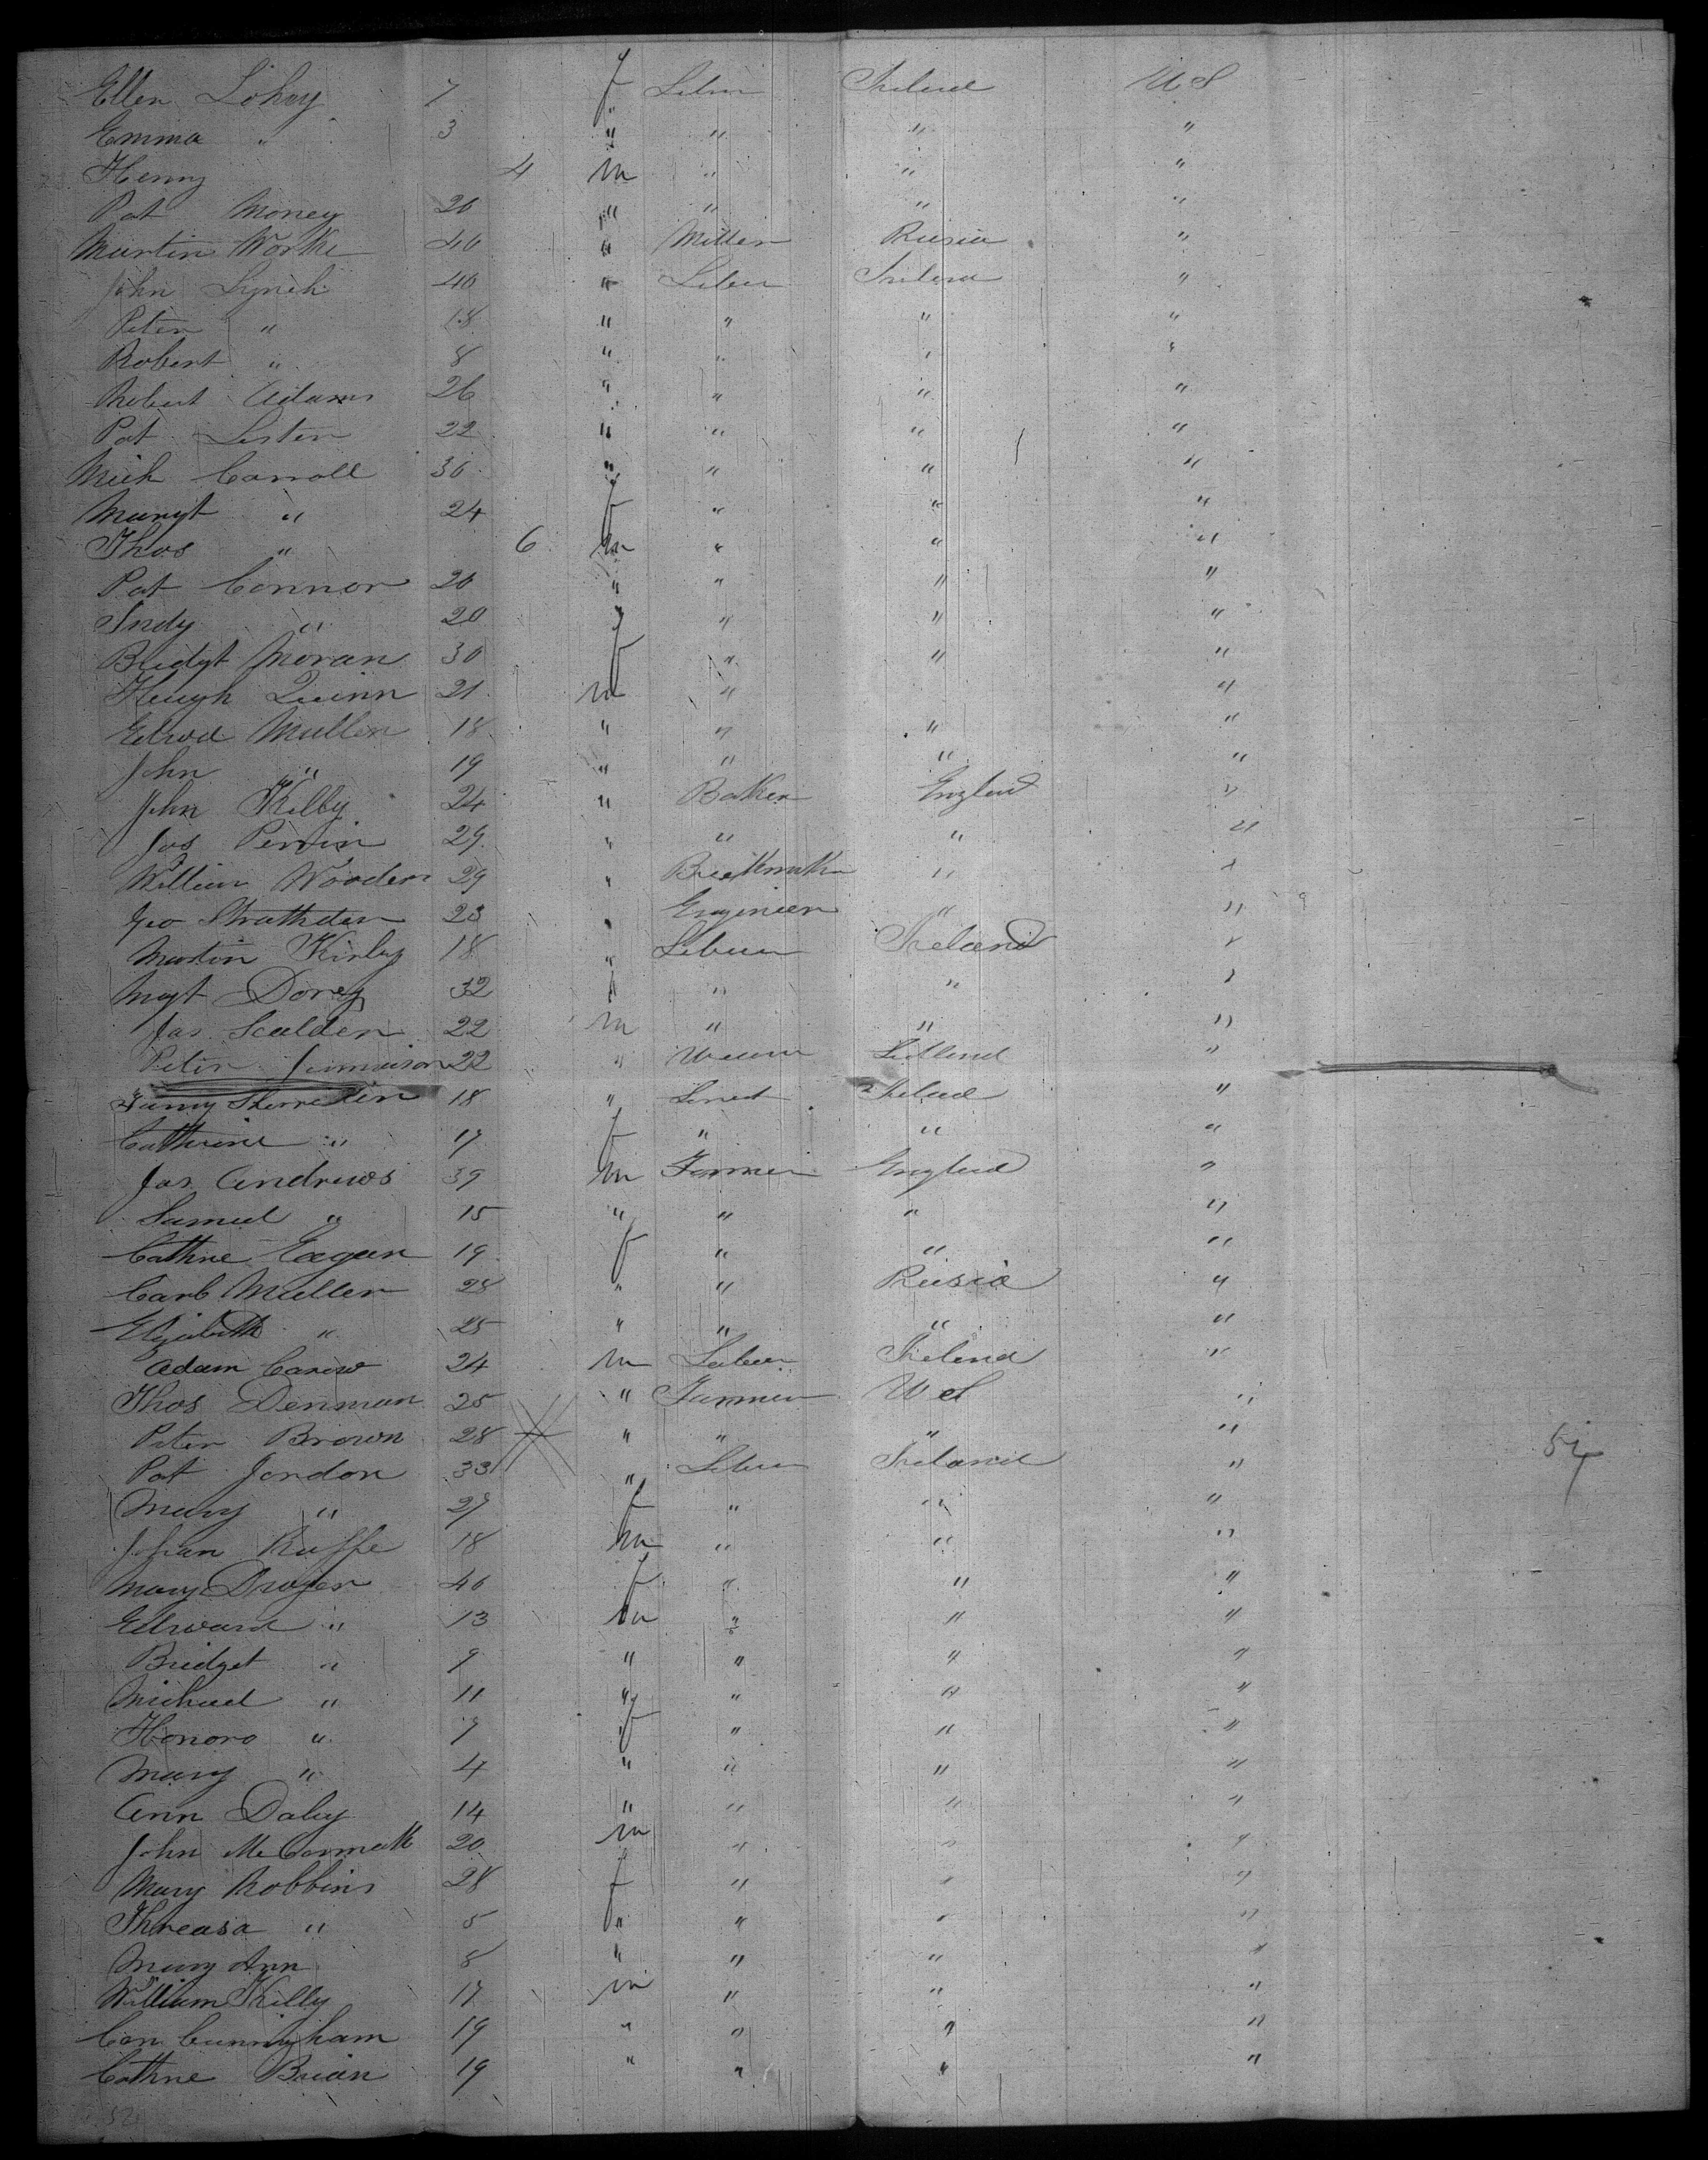 Ellen Lohey 7 f Labor Ireland U S
Emma " 3 " " " "
Henry 4 m " " "
Pat Money 20 " " " "
Martin Worke 40 " Miller Rusia "
John Lynch 40 " Labor Ireland "
Peter " 18 " " " "
Robert " 8 " " " "
Robert Adams 26 " " " "
Pat Lester 22 " " " "
Mich Carroll 30 " " " "
Margt " 24 f " " "
Thos " 6 m " " "
Pat Connor 20 " " " "
Judy " 20 f " " "
Bridgt Moran 30 f " " "
Hugh Quinn 21 m " "
Edwd Mullen 18 " " " "
John " 19 " " " "
John Kilby 24 " Baker England "
Jos Perrin 29 " " " "
William Wooden 29 " " "
Geo Strathden 23 " Engineer " "
Martin Kirby 18 " Labour Ireland "
Magt Dorey 32 f " " "
Jas Scalden 22 m " " "
Peter Jammison 22 " "
18 " Ireland "
Cathrine " 17 f " " "
Jas Andrews 39 m Farmer England "
Samuel " 15 " " " "
Cathne Eagan 19 f " " "
Carb Muller 28 " " Rusia "
Elizabeth " 25 " " " "
Adam Carew 24 m Labour Ireland "
Thos Denman 25 " Farmer U S "
Peter Brown 28 " " " "
Pat Jordon 33 " Labour Ireland "
57
Mary " 27 f " " "
Johan 18 m " " "
Mary Dwyer 40 f " " "
Edward " 13 m " " "
Bridget " 9 " " " "
Michael " 11 " " " "
Honoro " 7 f " " "
Mary " 4 " " " "
Ann Daley 14 " " " "
John McCormack 20 m " " "
Mary Robbins 28 f " " "
Threasa " 5 " " " "
Mary Ann 8 " " " "
William Killy 17 m " " "
Con Cunnigham 19 " " " "
Cathne Brian 19 " " " "